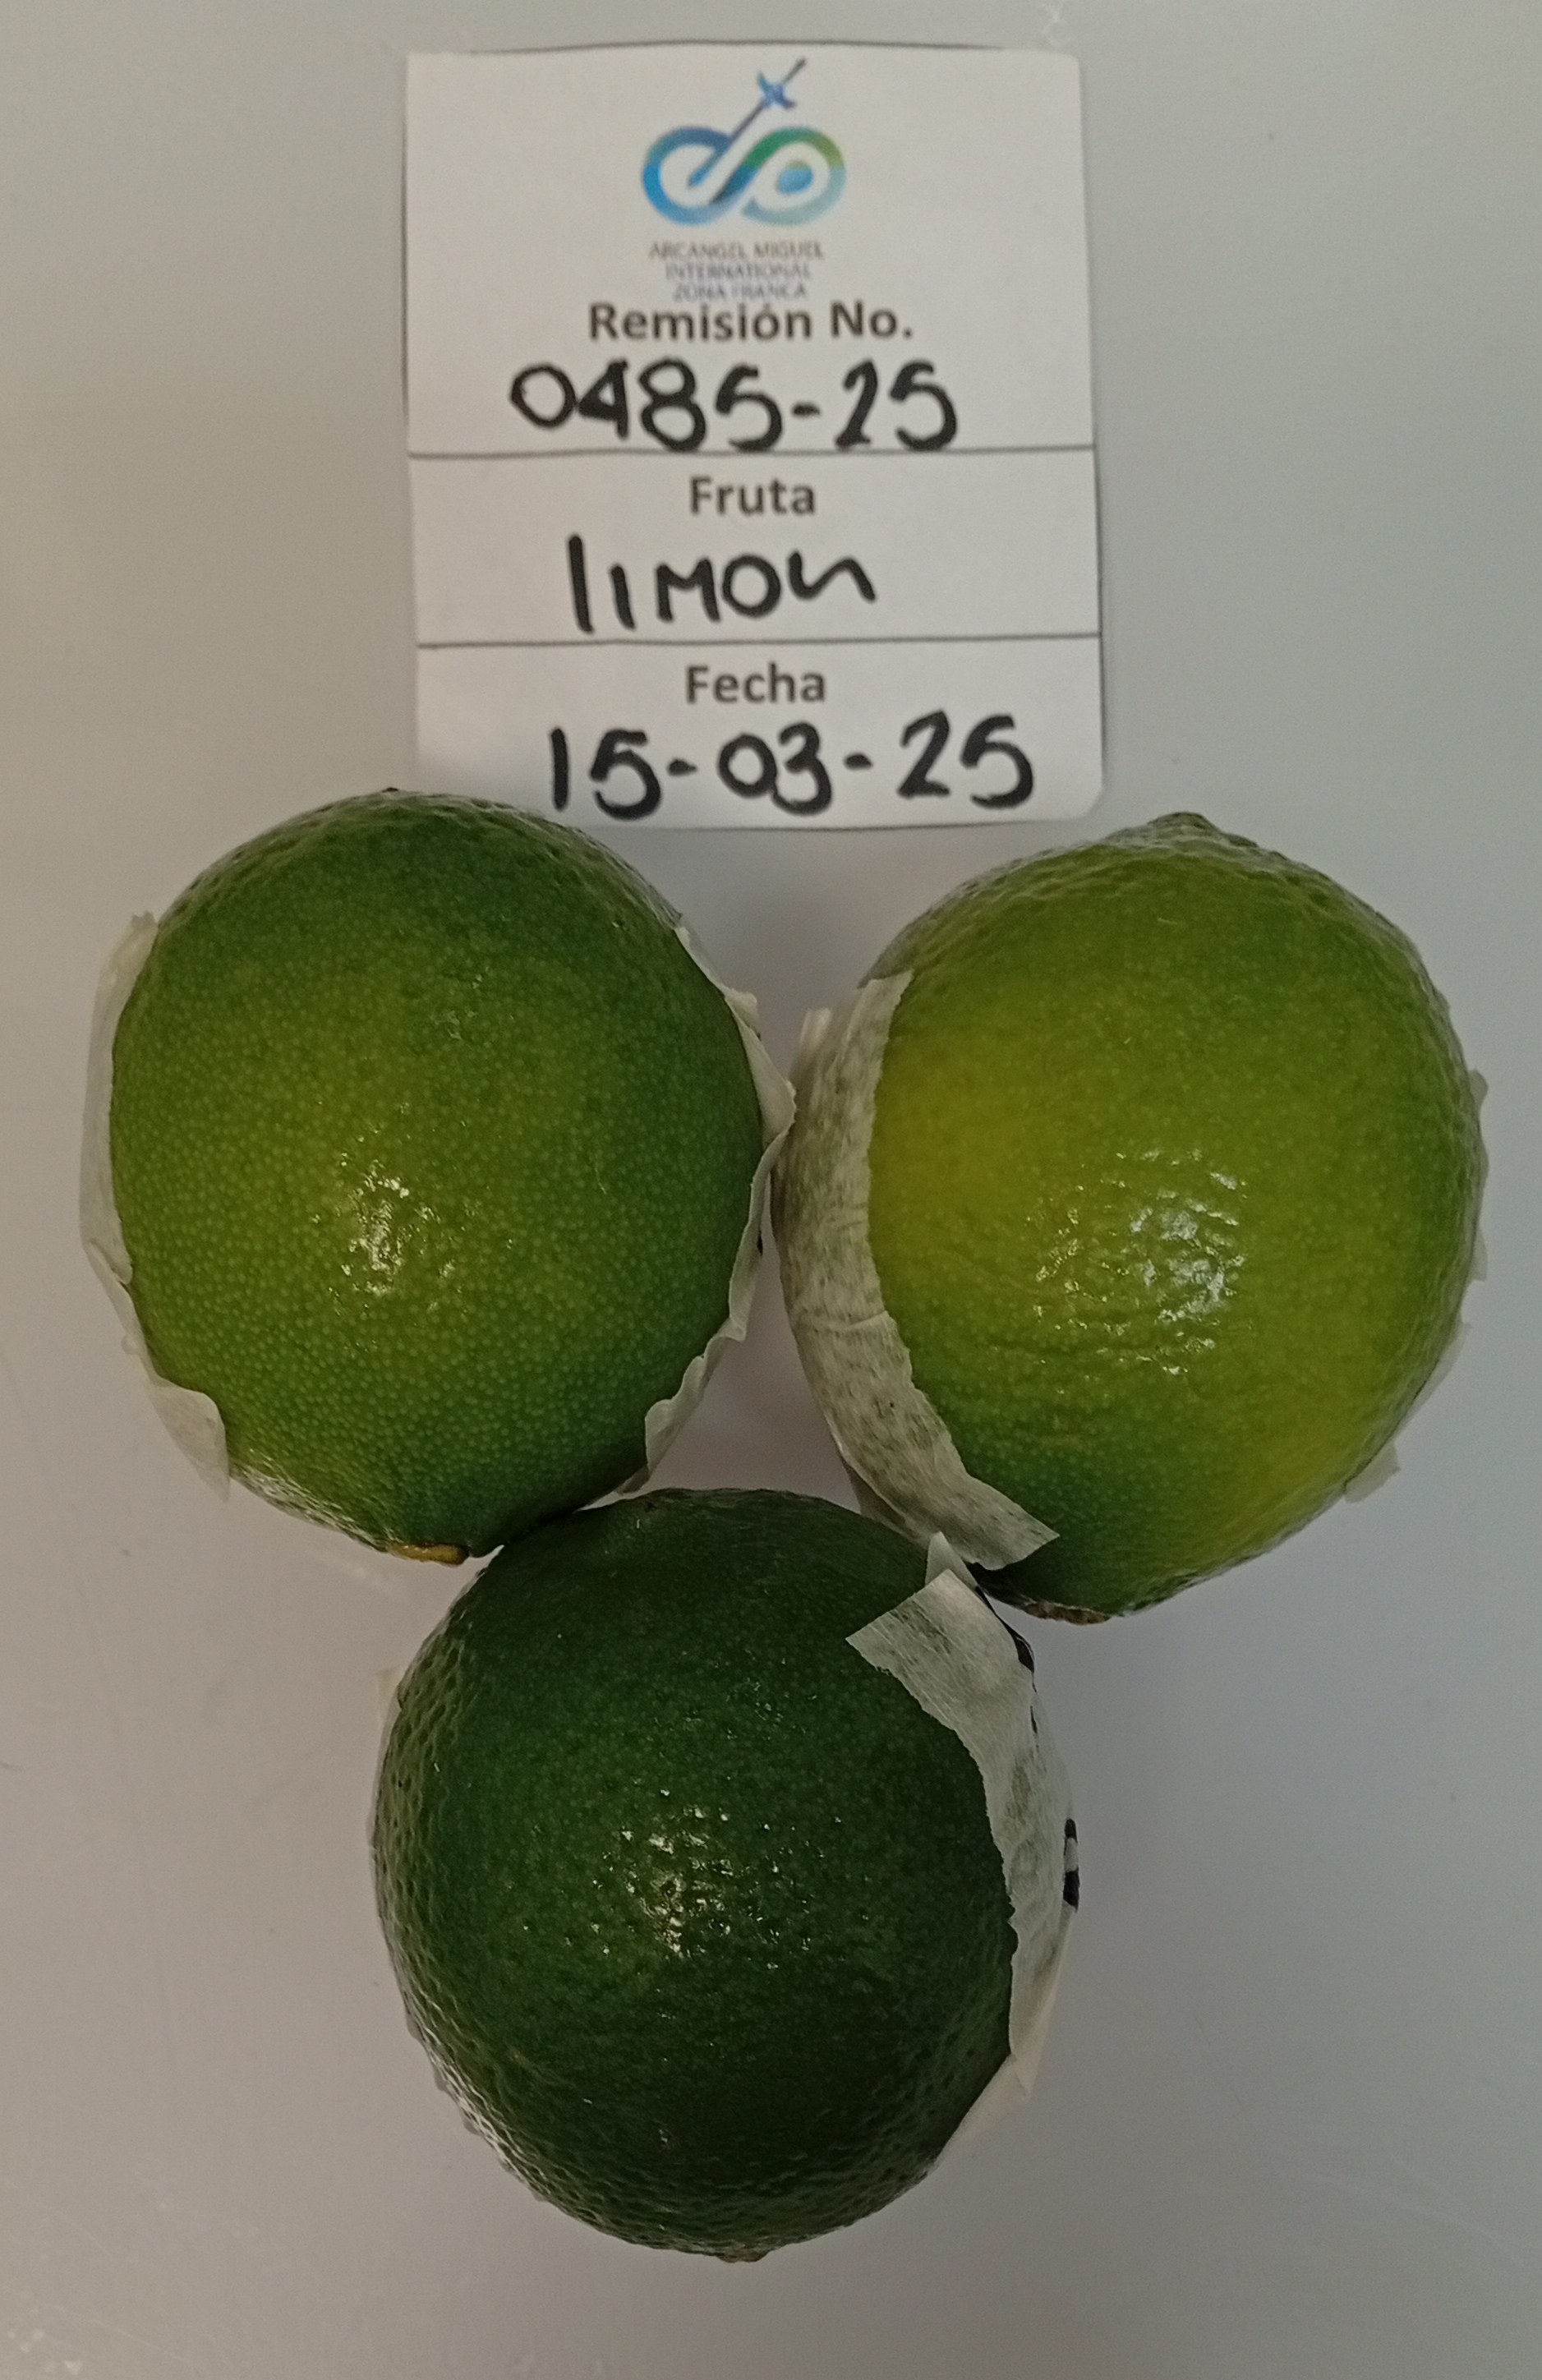 ARCANGEL MIGUEL
INTERNATIONAL
ZONA FRANCA
Remisión No.
0485-25
Fruta
limon
Fecha
15-03-25